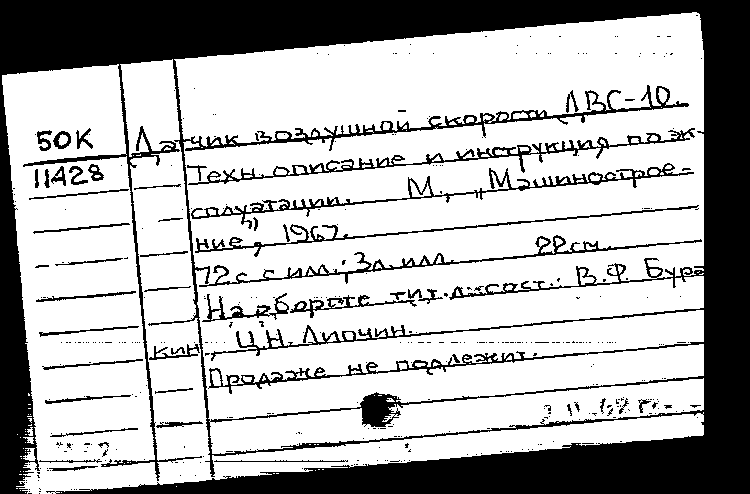 50К
11428
Датчик воздушной скорости ДВС-10.
Техн. описание и инструкция по эк-
сплуатации. М., „Машинострое-
ние", 1967.
72 с. с илл.; 3 л. илл. 22 см.
На обороте тит. л. сост.: В.Ф. Бура
кин, Ц.Н. Липчин.
Продаже не подлежит.